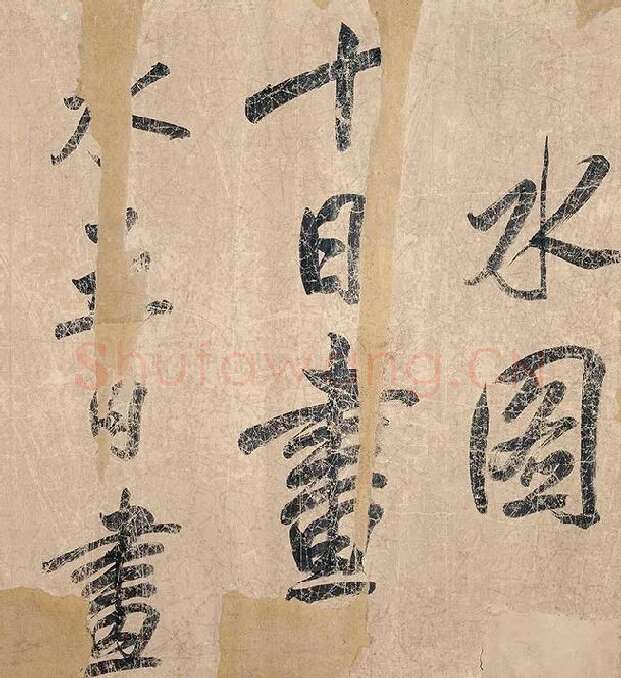 水圖
十日畫
水五日畫
Shufawang.CX